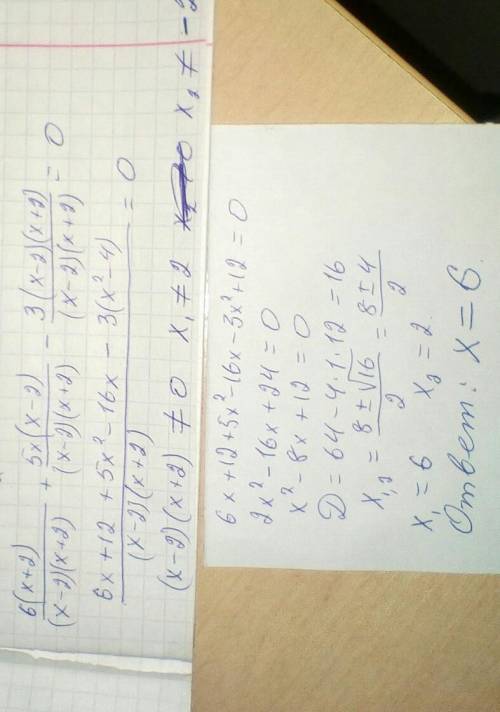 6(x+2)/(x-2)(x+2) + 5x(x-2)/(x-2)(x+2) - 3(x-2)(x+2)/(x-2)(x+2) = 0
6x+12+5x²-16x-3(x²-4)/(x-2)(x+2) = 0
(x-2)(x+2) ≠ 0 x₁ ≠ 2 x₂ ≠ -2
6x+12+5x²-16x-3x²+12=0
2x²-16x+24=0
x²-8x+12=0
D=64-4·1·12=16
x₁,₂ = 8±√16/2 = 8±4/2
x₁=6 x₂=2
Ответ: x=6